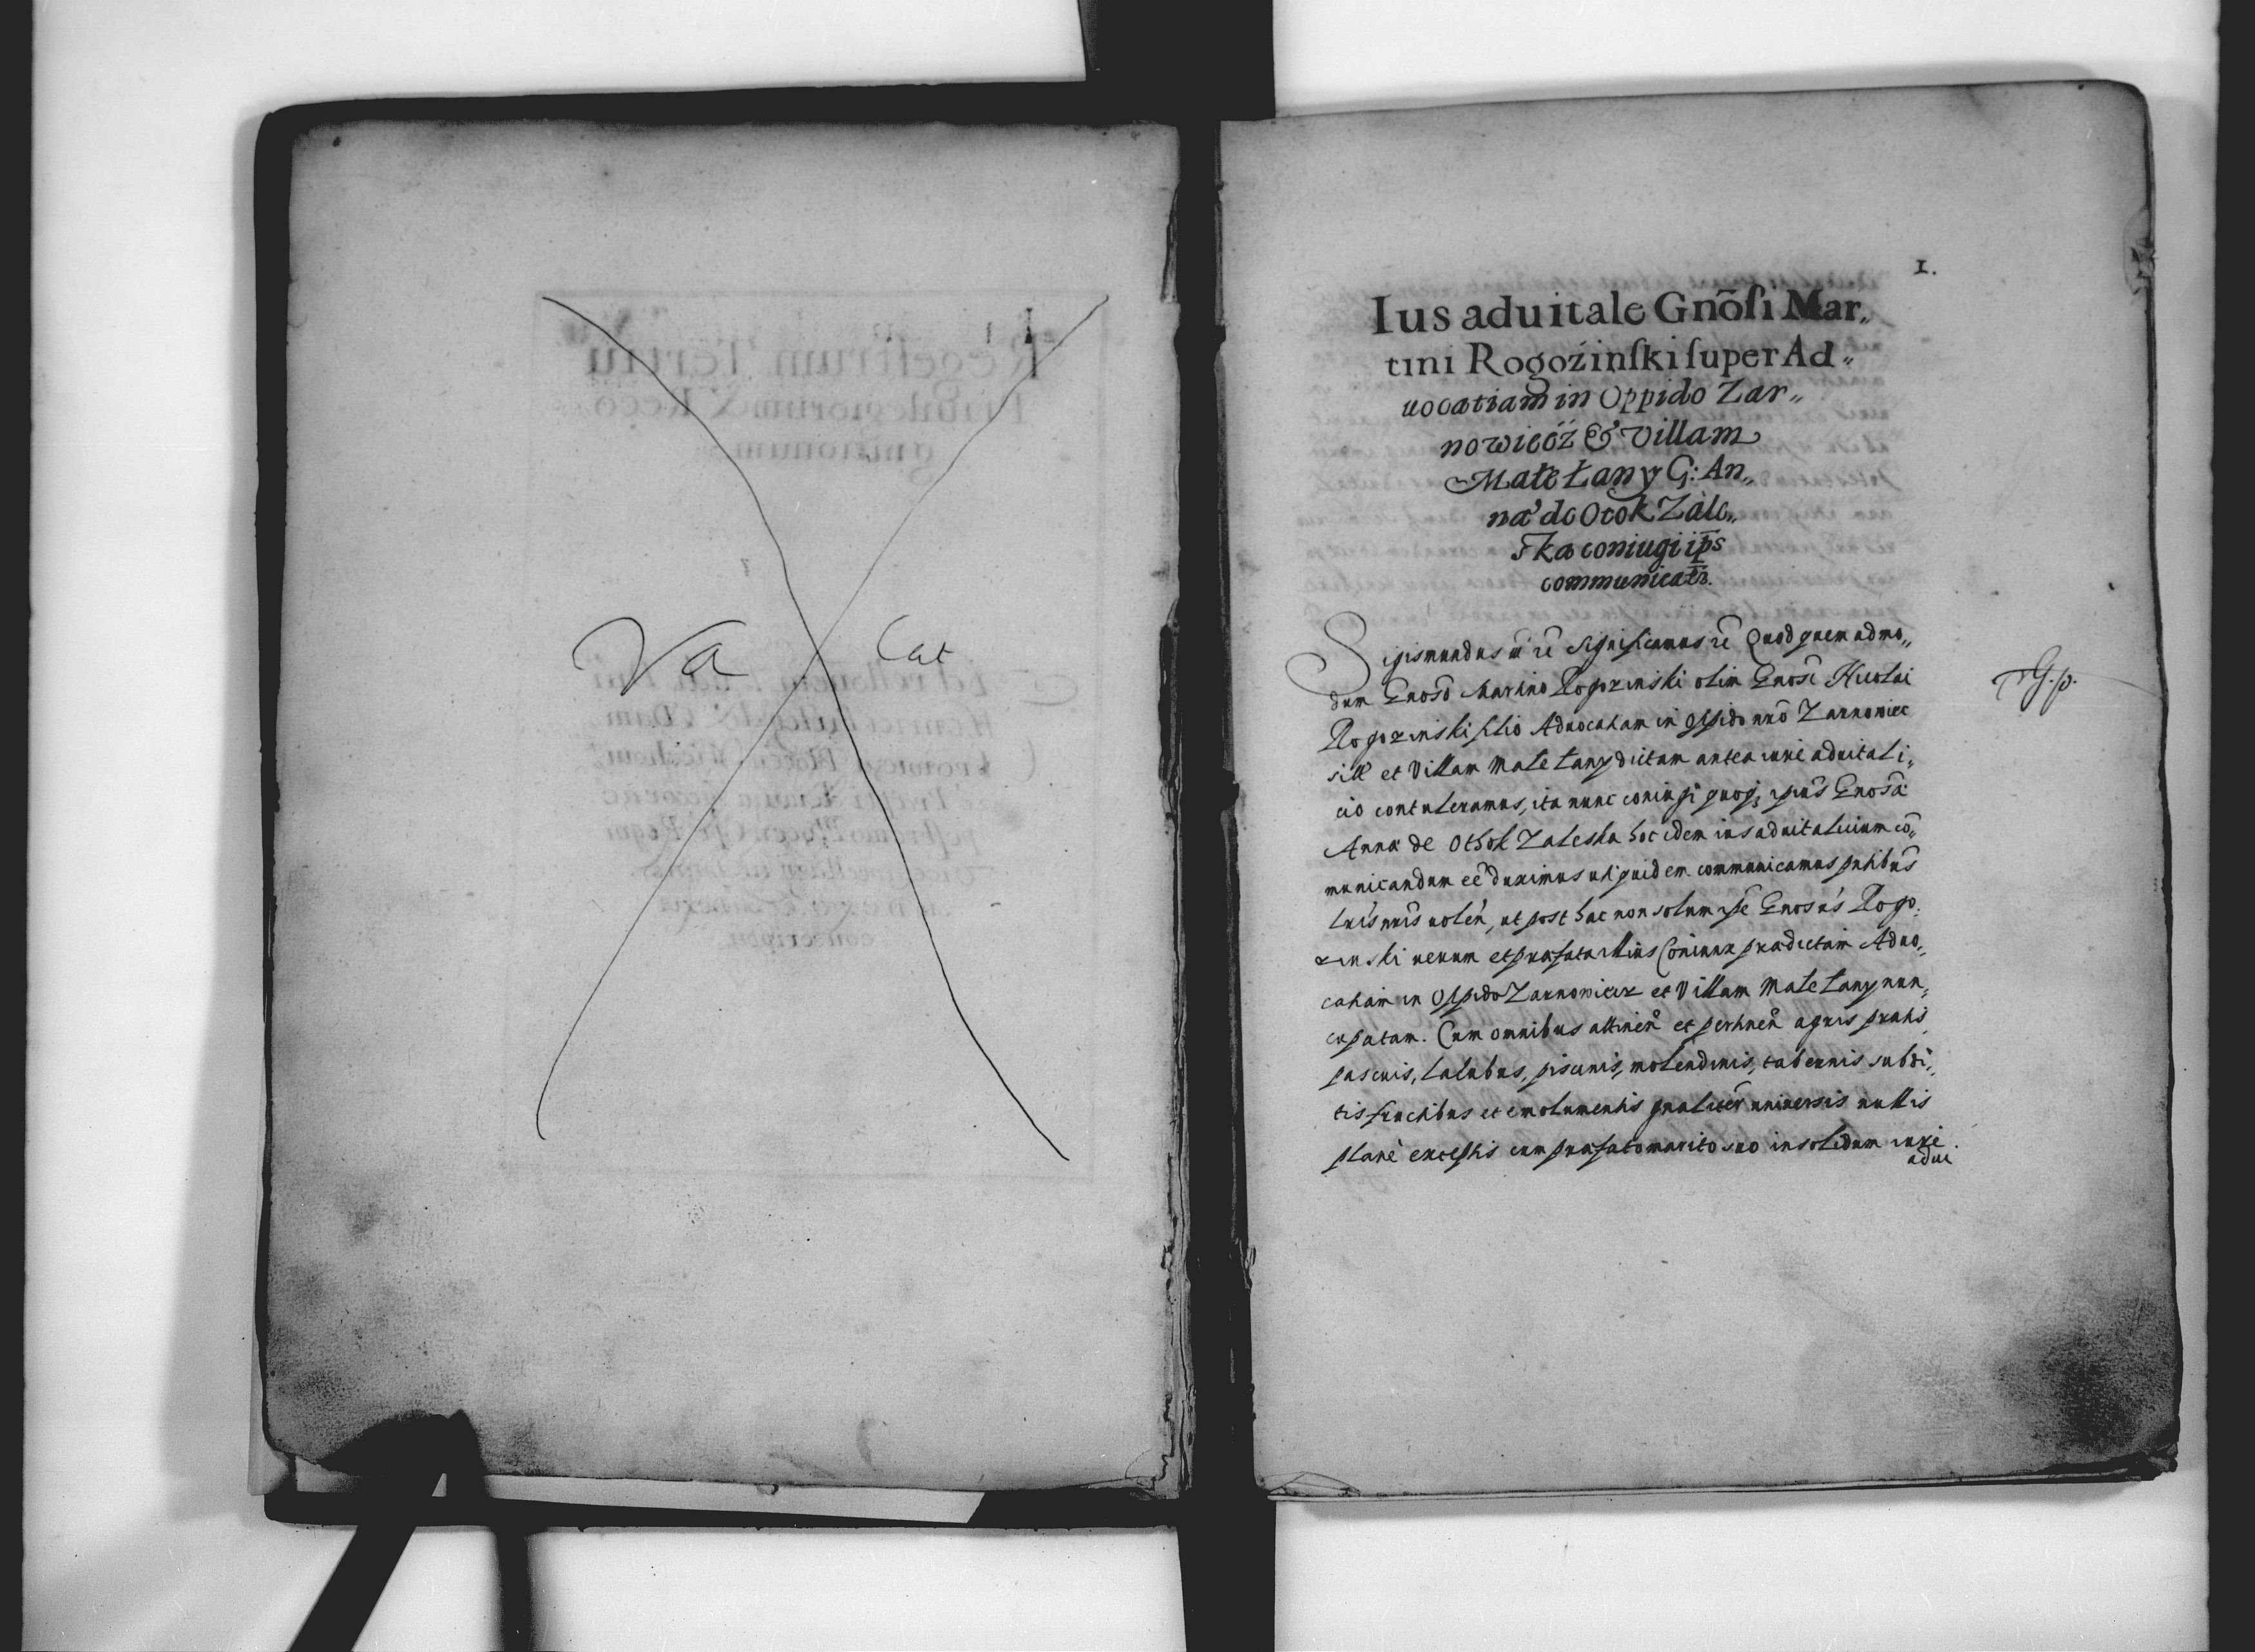 Va cat
1.
Ius aduitale Gnõsi Mar„
tini Rogoźinski super Ad„
uocatiam in Oppido Zar„
nowiecz & Villam
Małe Łany G: An„
na de Otok Zale„
ska coniugi ips
communicatr.
Sigismundus iii rē Significamus rē Quod quem admo„
dum Gnoso Martino Rogozinski olim Gnosi Nicolai
Rogozinski filio Aduocatiam in oppido nrō Zarnowiec
sitā et Villam Małe Łany dictam antea iure aduitali„
cio contuleramus, ita nunc coniugi quoq; ipsius Gnosa
Anna de Othok Zaleska hoc idem ius aduitalicium cō„
municandum eē duximus uti quidem communicamus pntibus
lris nris uolen, ut post hac non solum ipse Gnosus Rogo„
zinski uerum et praefata illius Coniunx praedictam Aduo„
catiam in Oppido Zarnowiecz et Villam Małe Łany nun„
cupatam. Cum omnibus attinen et pertinen agris pratis
pascuis, lacubus, piscinis, molendinis, tabernis subdi„
tis fructibus et emolumentis gnaliter uniuersis nullis
plane exceptis cum praefato marito suo insolidum iure
adui